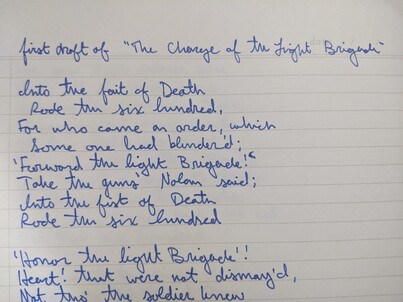 first draft of "The Charge of the Light Brigade"
Into the fait of Death
Rode the six hundred,
For who came an order, which
Some one had blunder'd;
'Forward the light Brigade!'
Take the guns' Nolan said;
Into the fist of Death
Rode the six hundred
'Honor the light Brigade'!
Heart! that were not dismay'd,
Not tho' the soldier knew